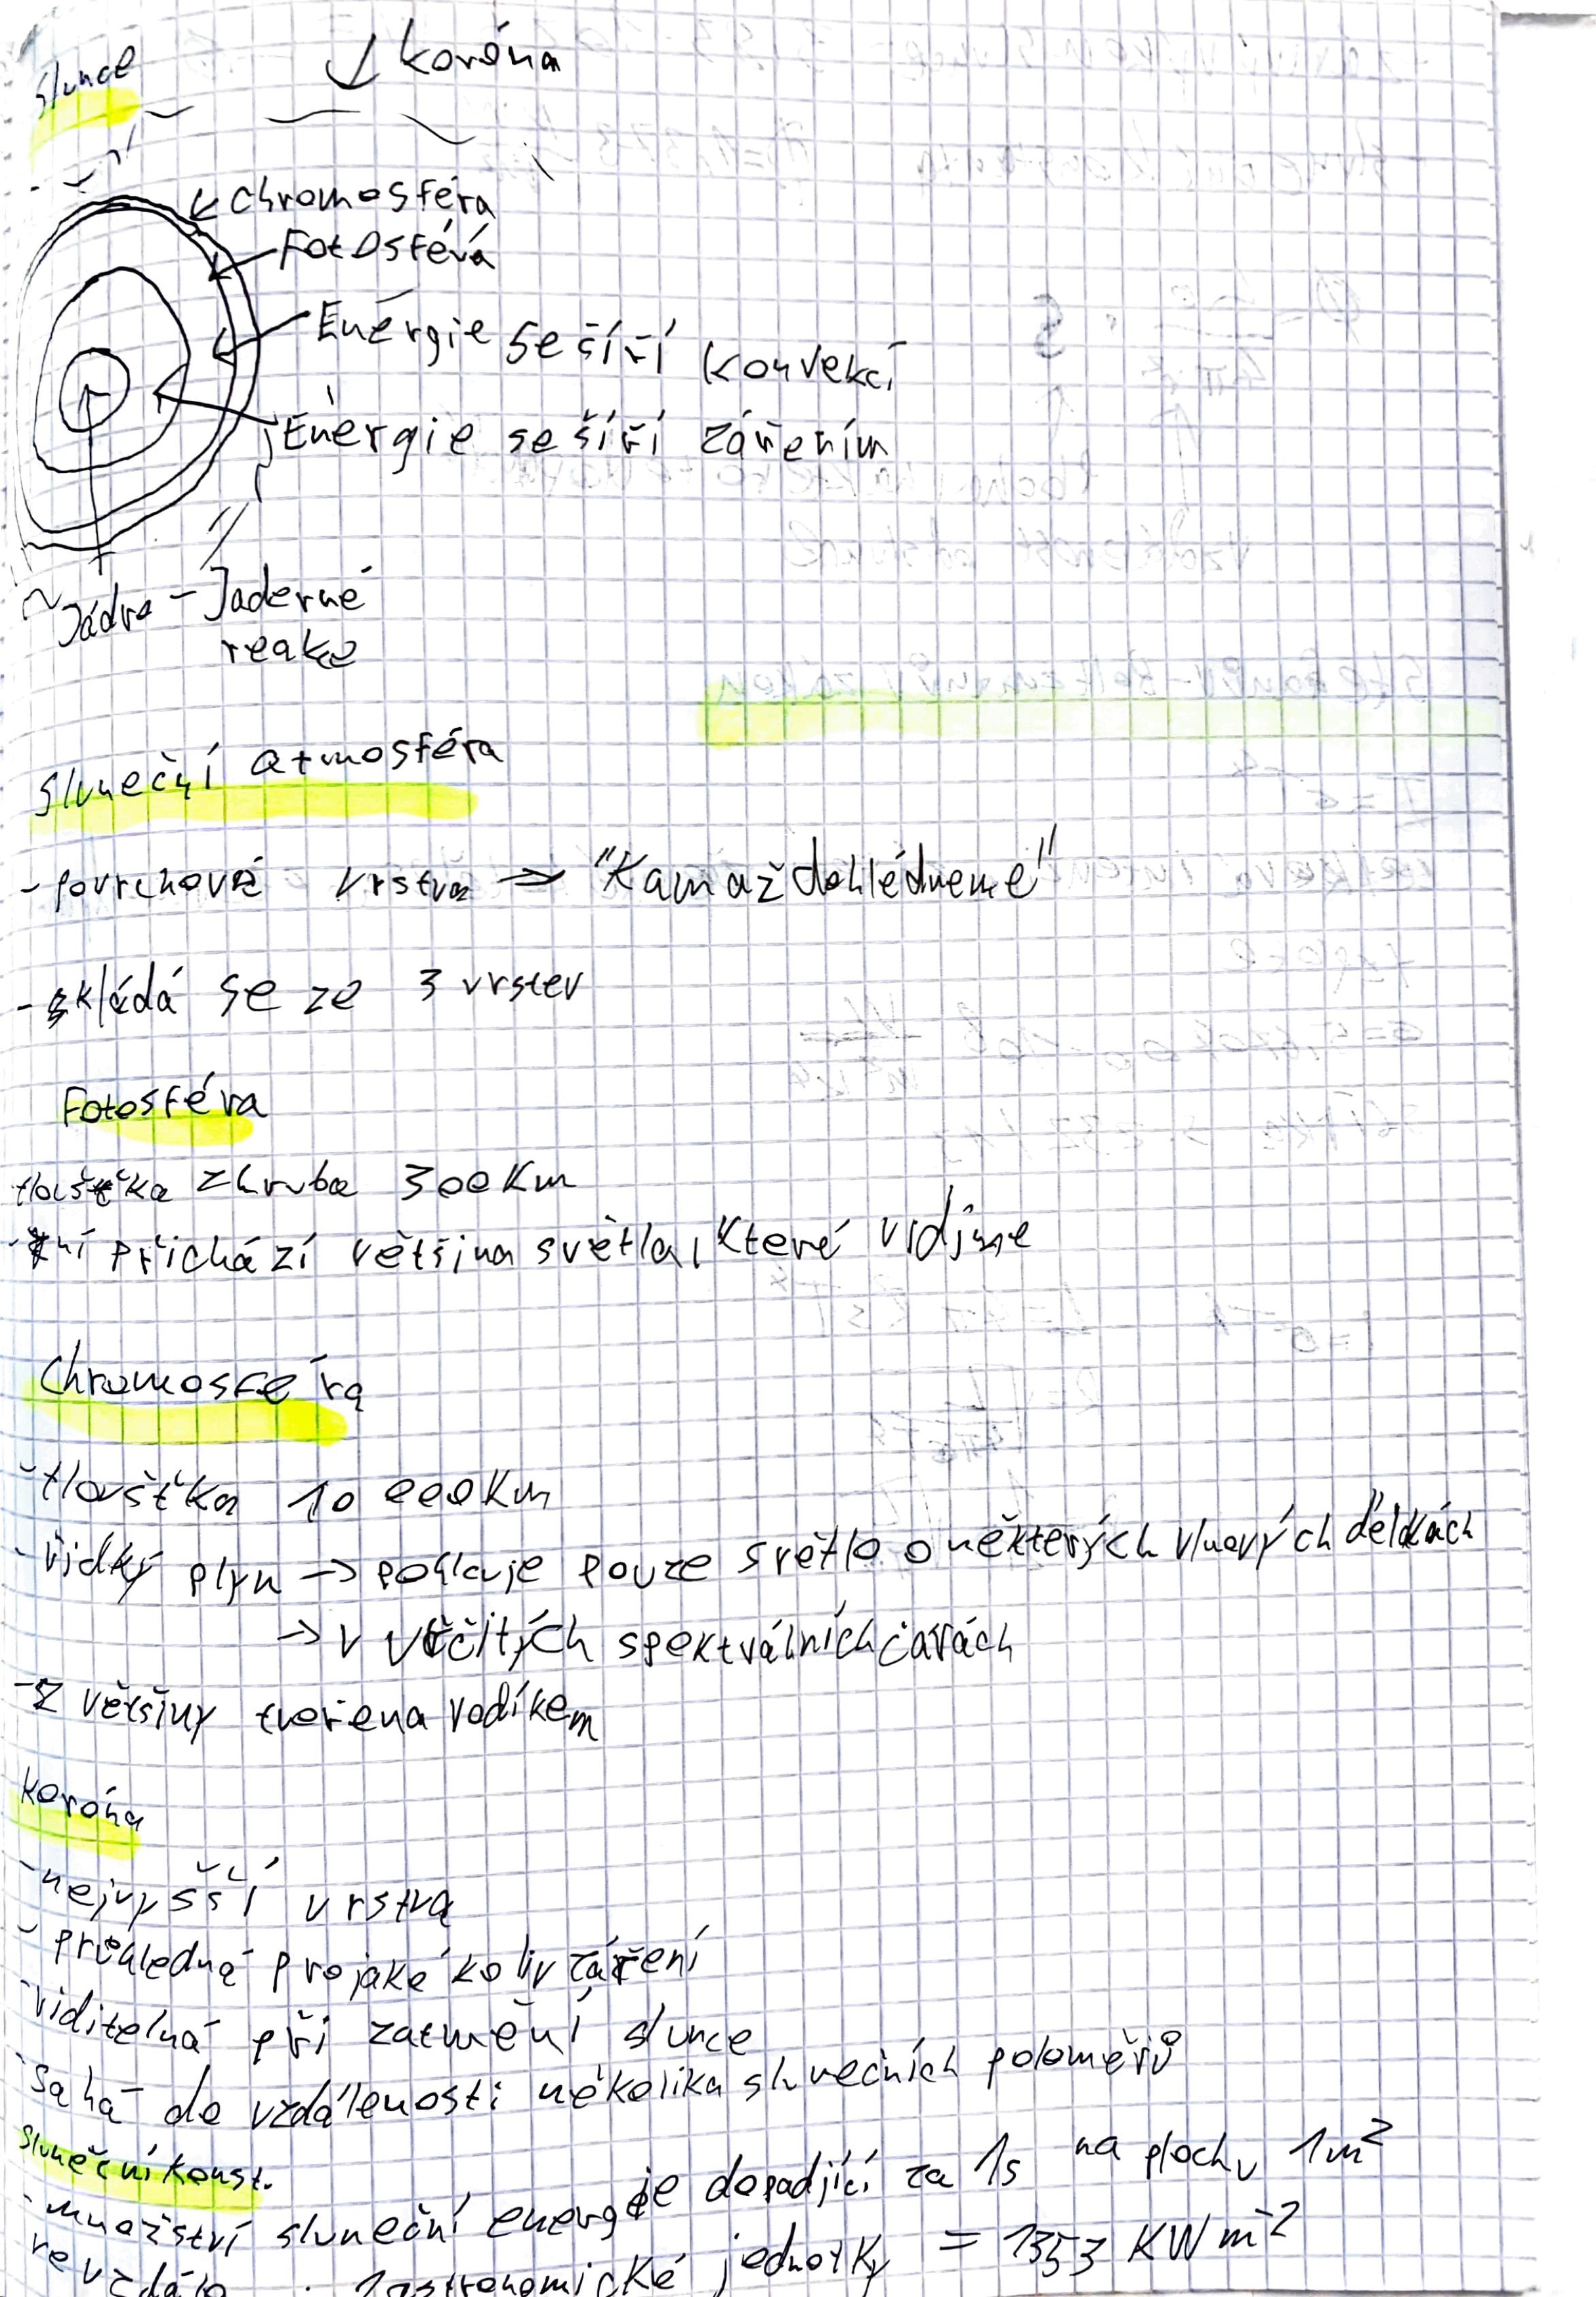 Slunce
↓ koróna
← chromosféra
Fotosféra
Energie se šíří konvekcí
Energie se šíří zářením
Jádro - Jaderné
reakce
Sluneční atmosféra
- povrchová vrstva → "Kam až dohlédneme"
- skládá se ze 3 vrstev
Fotosféra
tloušťka zhruba 300 Km
- z ní přichází většina světla, které vidíme
Chromosféra
- tloušťka 10 000 Km
- řídký plyn → pohlcuje pouze světlo o některých vlnových délkách
→ v určitých spektrálních čarách
- z většiny tvořena vodíkem
koróna
- nejvyšší vrstva
- průhledná pro jakékoliv záření
- viditelná při zatmění slunce
- sahá do vzdálenosti několika slunečních poloměrů
Sluneční konst.
- množství sluneční energie dopadjící za 1s na plochu 1m²
ve vzdále 1 astronomické jednotky = 1353 KW m⁻²